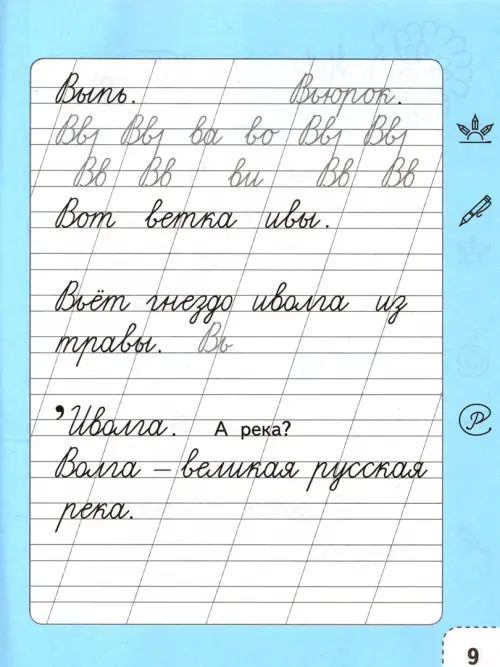 Выпь. Вьюрок.
Ввј Ввј ва во Ввј Ввј
Вв Вв ви Вв Вв
Вот ветка ивы.
Вьёт гнездо иволга из
травы. Вь
’Иволга. А река?
Волга – великая русская
река.
9